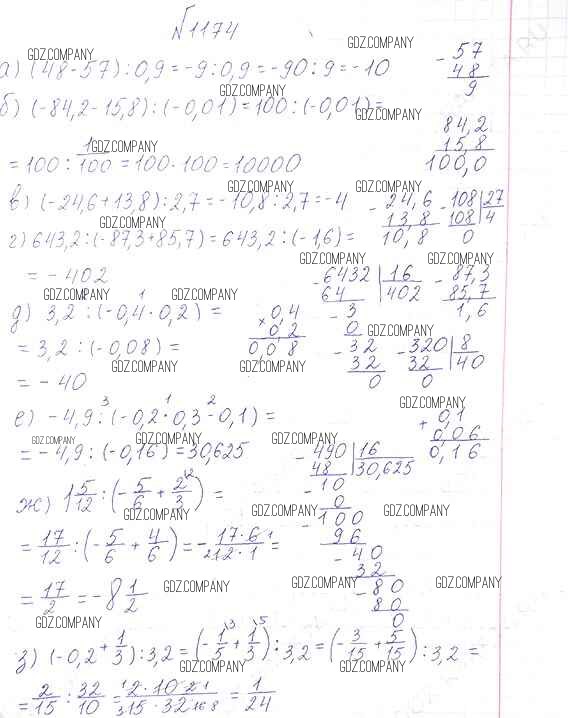 №1174
а) (48-57):0,9=-9:0,9=-90:9=-10
57
48
9
б) (-84,2-15,8):(-0,01)=100:(-0,01)=
=100:1/100=100·100=10000
84,2
15,8
100,0
в) (-24,6+13,8):2,7=-10,8:2,7=-4
24,6
13,8
10,8
108|27
108 4
0
г) 643,2:(-87,3+85,7)=643,2:(-1,6)=
=-402
6432|16
64 402
3
0
32
32
0
87,3
85,7
1,6
д) 3,2:(-0,4·0,2)=
=3,2:(-0,08)=
=-40
0,4
×0,2
0,08
320|8
32 40
0
е) -4,9:(-0,2·0,3-0,1)=
=-4,9:(-0,16)=30,625
0,1
+0,06
0,16
490|16
48 30,625
10
0
100
96
40
32
80
80
0
ж) 1 5/12:(-5/6+2/3)=
=17/12:(-5/6+4/6)=-17·6/12·1=
=17/2=-8 1/2
з) (-0,2+1/3):3,2=(-1/5+1/3):3,2=(-3/15+5/15):3,2=
=2/15:32/10=2·10/15·32=1/24
GDZ.COMPANY